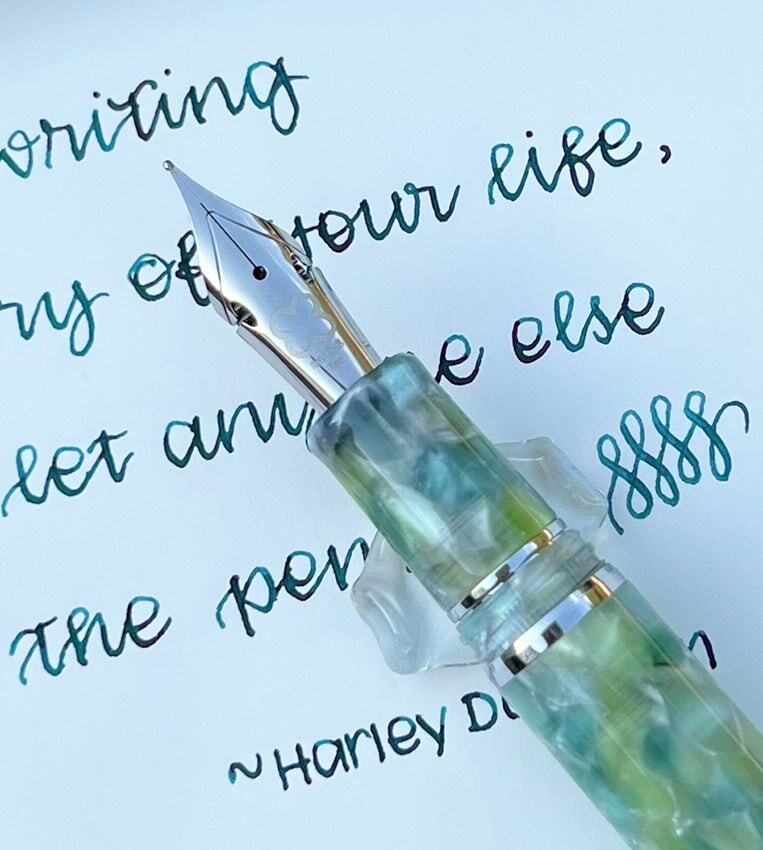 writing
ry of your life,
let any e else
the pen
~Harley D